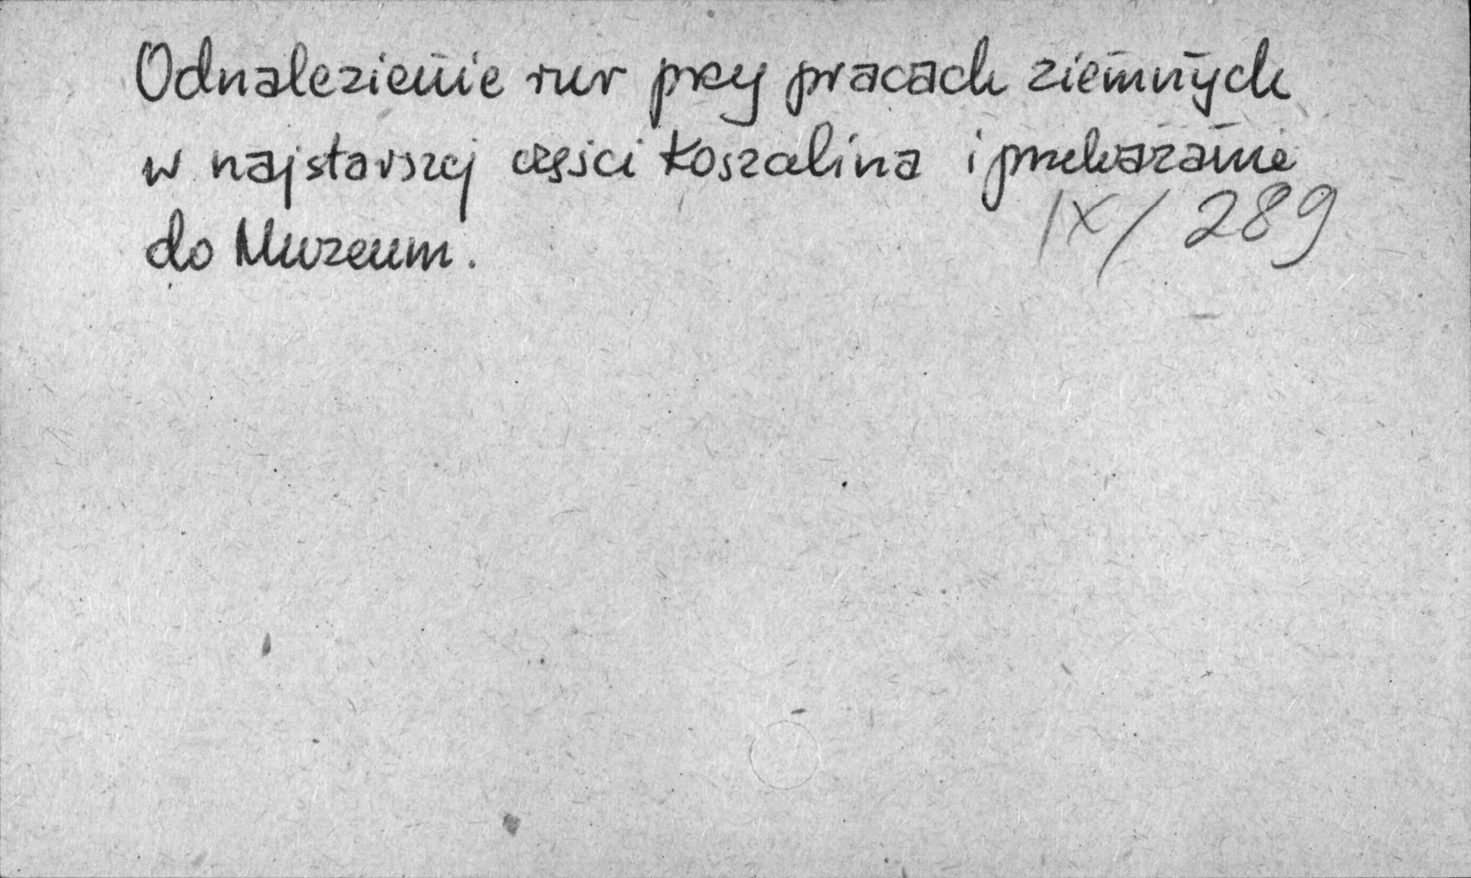 Odnalezienie rur przy pracach ziemnych
w najstarszej części Koszalina i przekazanie
do Muzeum.
IX/289